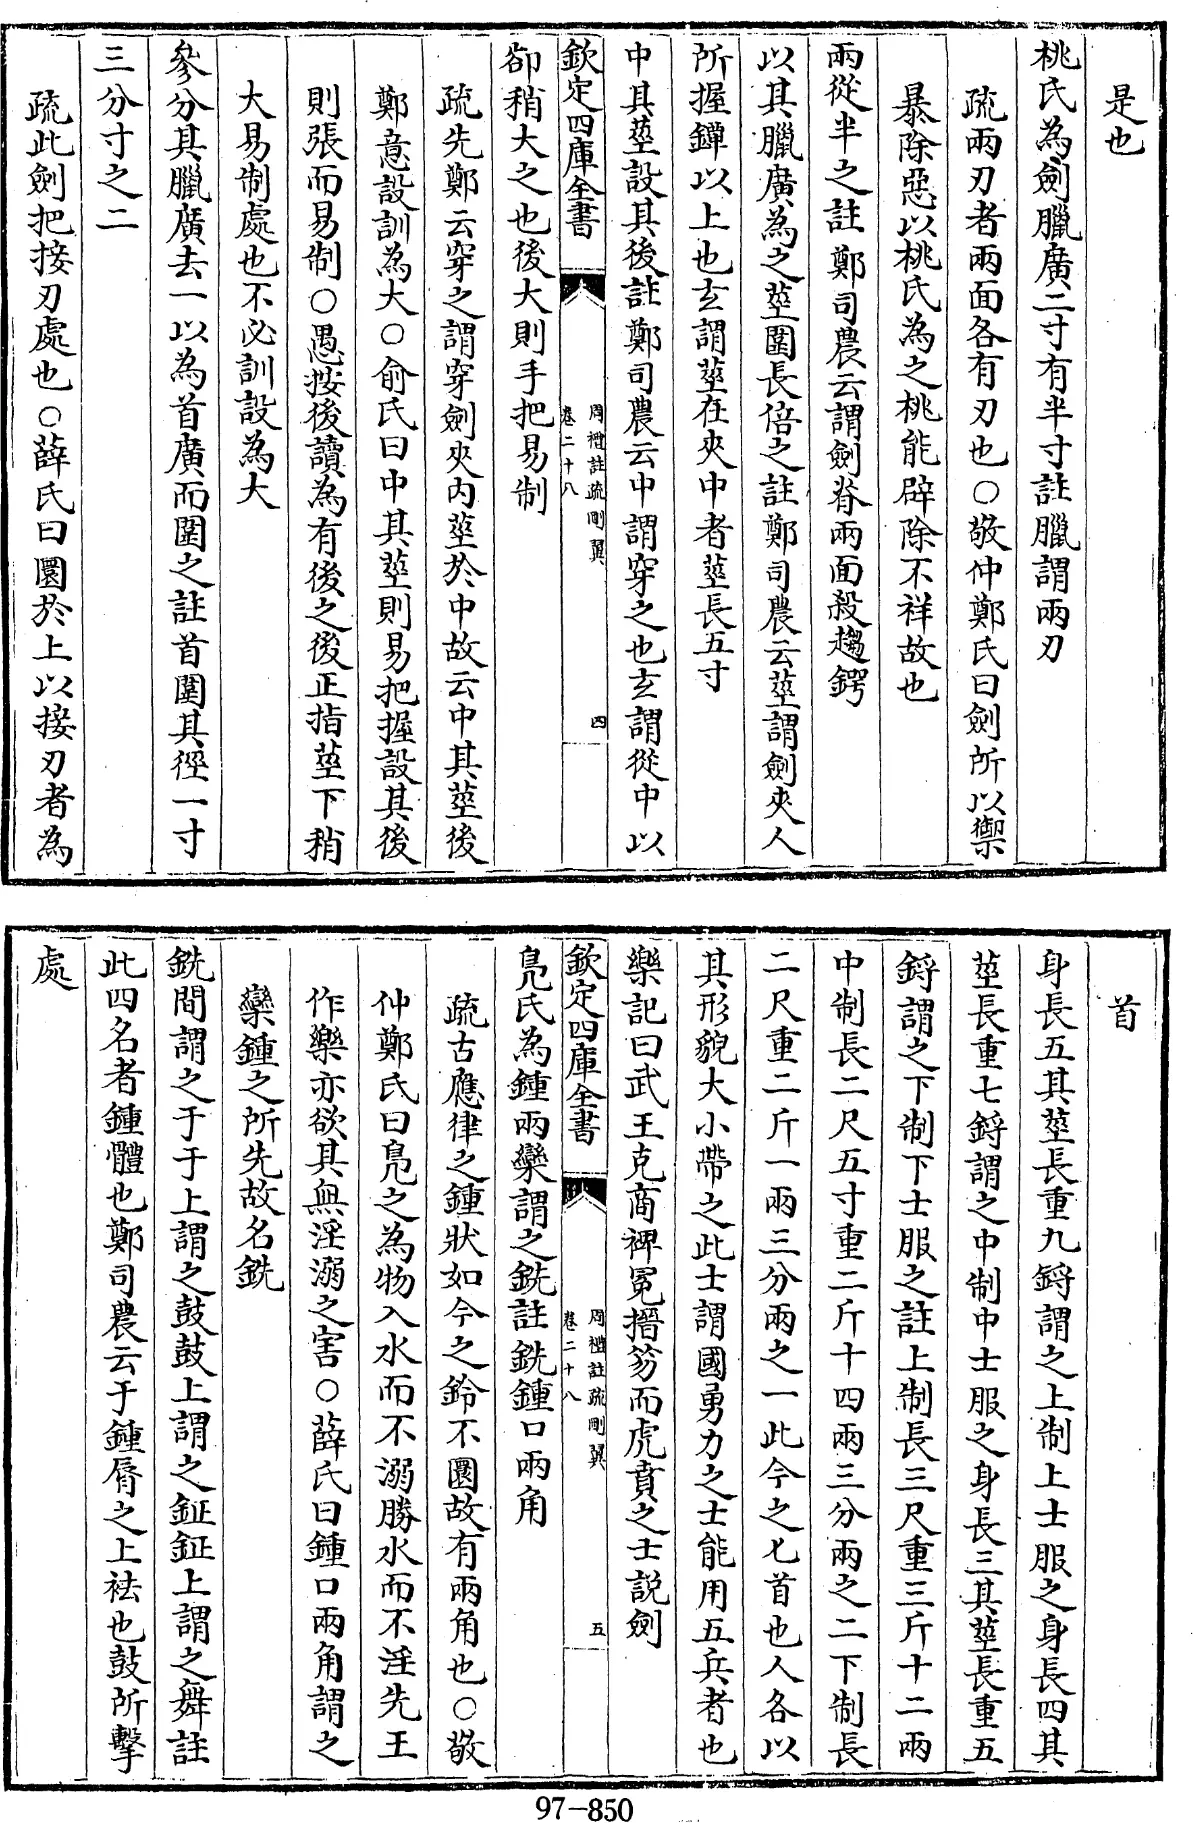 是也
桃氏為劍臘廣二寸有半寸註臘謂兩刃
疏兩刃者兩面各有刃也○敬仲鄭氏曰劍所以禦
暴除惡以桃氏為之桃能辟除不祥故也
兩從半之註鄭司農云謂劍脊兩面殺趨鍔
以其臘廣為之莖圍長倍之註鄭司農云莖謂劍夾人
所握鐔以上也玄謂莖在夾中者莖長五寸
中其莖設其後註鄭司農云中謂穿之也玄謂從中以
欽定四庫全書
周禮註疏刪翼
卷二十八
四
卻稍大之也後大則手把易制
疏先鄭云穿之謂穿劍夾内莖於中故云中其莖後
鄭意設訓為大○俞氏曰中其莖則易把握設其後
則張而易制○愚按後讀為有後之後正指莖下稍
大易制處也不必訓設為大
參分其臘廣去一以為首廣而圍之註首圍其徑一寸
三分寸之二
疏此劍把接刃處也○薛氏曰圜於上以接刃者為
首
身長五其莖長重九鋝謂之上制上士服之身長四其
莖長重七鋝謂之中制中士服之身長三其莖長重五
鋝謂之下制下士服之註上制長三尺重三斤十二兩
中制長二尺五寸重二斤十四兩三分兩之二下制長
二尺重二斤一兩三分兩之一此今之匕首也人各以
其形貌大小帶之此士謂國勇力之士能用五兵者也
樂記曰武王克商裨冕搢笏而虎賁之士說劍
欽定四庫全書
周禮註疏刪翼
卷二十八
五
鳧氏為鍾兩欒謂之銑註銑鍾口兩角
疏古應律之鍾狀如今之鈴不圜故有兩角也○敬
仲鄭氏曰鳧之為物入水而不溺勝水而不淫先王
作樂亦欲其無淫溺之害○薛氏曰鍾口兩角謂之
欒鍾之所先故名銑
銑間謂之于于上謂之鼓鼓上謂之鉦鉦上謂之舞註
此四名者鍾體也鄭司農云于鍾脣之上袪也鼓所擊
處
97-850